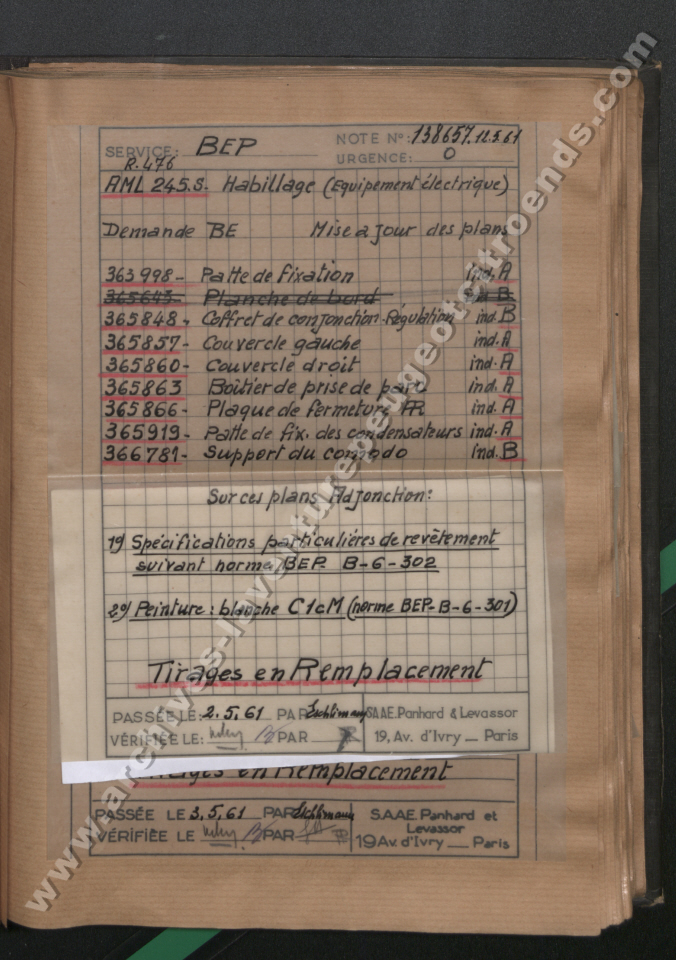 SERVICE: BEP
NOTE N°: 138657. 12.5.61
R.476
URGENCE: O
AML 245.S. Habillage (Equipement électrique)
Demande BE Mise a jour des plans
363998- Patte de fixation ind. A
365643- Planche de bord ind B
365848- Coffret de conjonction-Régulation ind. B
365857- Couvercle gauche ind. A
365860- Couvercle droit ind. A
365863 Boitier de prise de parc ind. A
365866- Plaque de fermeture AR ind. A
365919- Patte de fix. des condensateurs ind. A
366781- Support du comodo ind. B
Sur ces plans Adjonction:
1°) Spécifications particulières de revêtement
suivant norme BEP. B-6-302
2°) Peinture: blanche C1cM (norme BEP-B-6-301)
Tirages en Remplacement
PASSÉE LE: 2.5.61 PAR S.A.A.E. Panhard & Levassor
VÉRIFIÉE LE: PAR 19, Av. d'Ivry — Paris
Tirages en Remplacement
PASSÉE LE 3.5.61 PAR S.A.A.E. Panhard et
Levassor
VÉRIFIÉE LE PAR 19 Av. d'Ivry — Paris
www.archives-laventurepeugeotcitroends.com